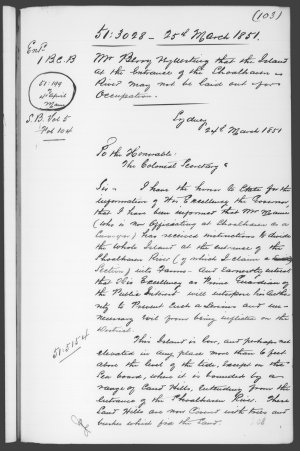 (103)
51:3028 - 25th March 1851.
Encl.
1 B.C.B
Mr Berry requesting that the Island
at the Entrance of the Shoalhaven
River may not be laid out for
Occupation.
51.
4th April
S.B. Vol 5
Fol 104
Sydney
24th March 1851
To the Honorable
The Colonial Secretary
Sir - I have the honor to state for the
information of His Excellency the Governor
that I have been informed that Mr
(who is now Officiating at Shoalhaven as a
Surveyor) has received instructions to divide
the whole Island at the entrance of the
Shoalhaven River (of which I claim a
Section) into Farms - And earnestly intreat
that His Excellency as Prime Guardian of
the Public Interest will interpose his Autho-
rity to Prevent Such a
from being inflicted on the
District.
51:5154
This Island is low, and perhaps not
elevated in any place more than 6 feet
above the level of the tide, except on the
Sea board, where it is bounded by a
range of Sand Hills, extending from the
Entrance of the Shoalhaven River. These
Sand Hills are now Covered with trees and
bushes which fix the Sand.